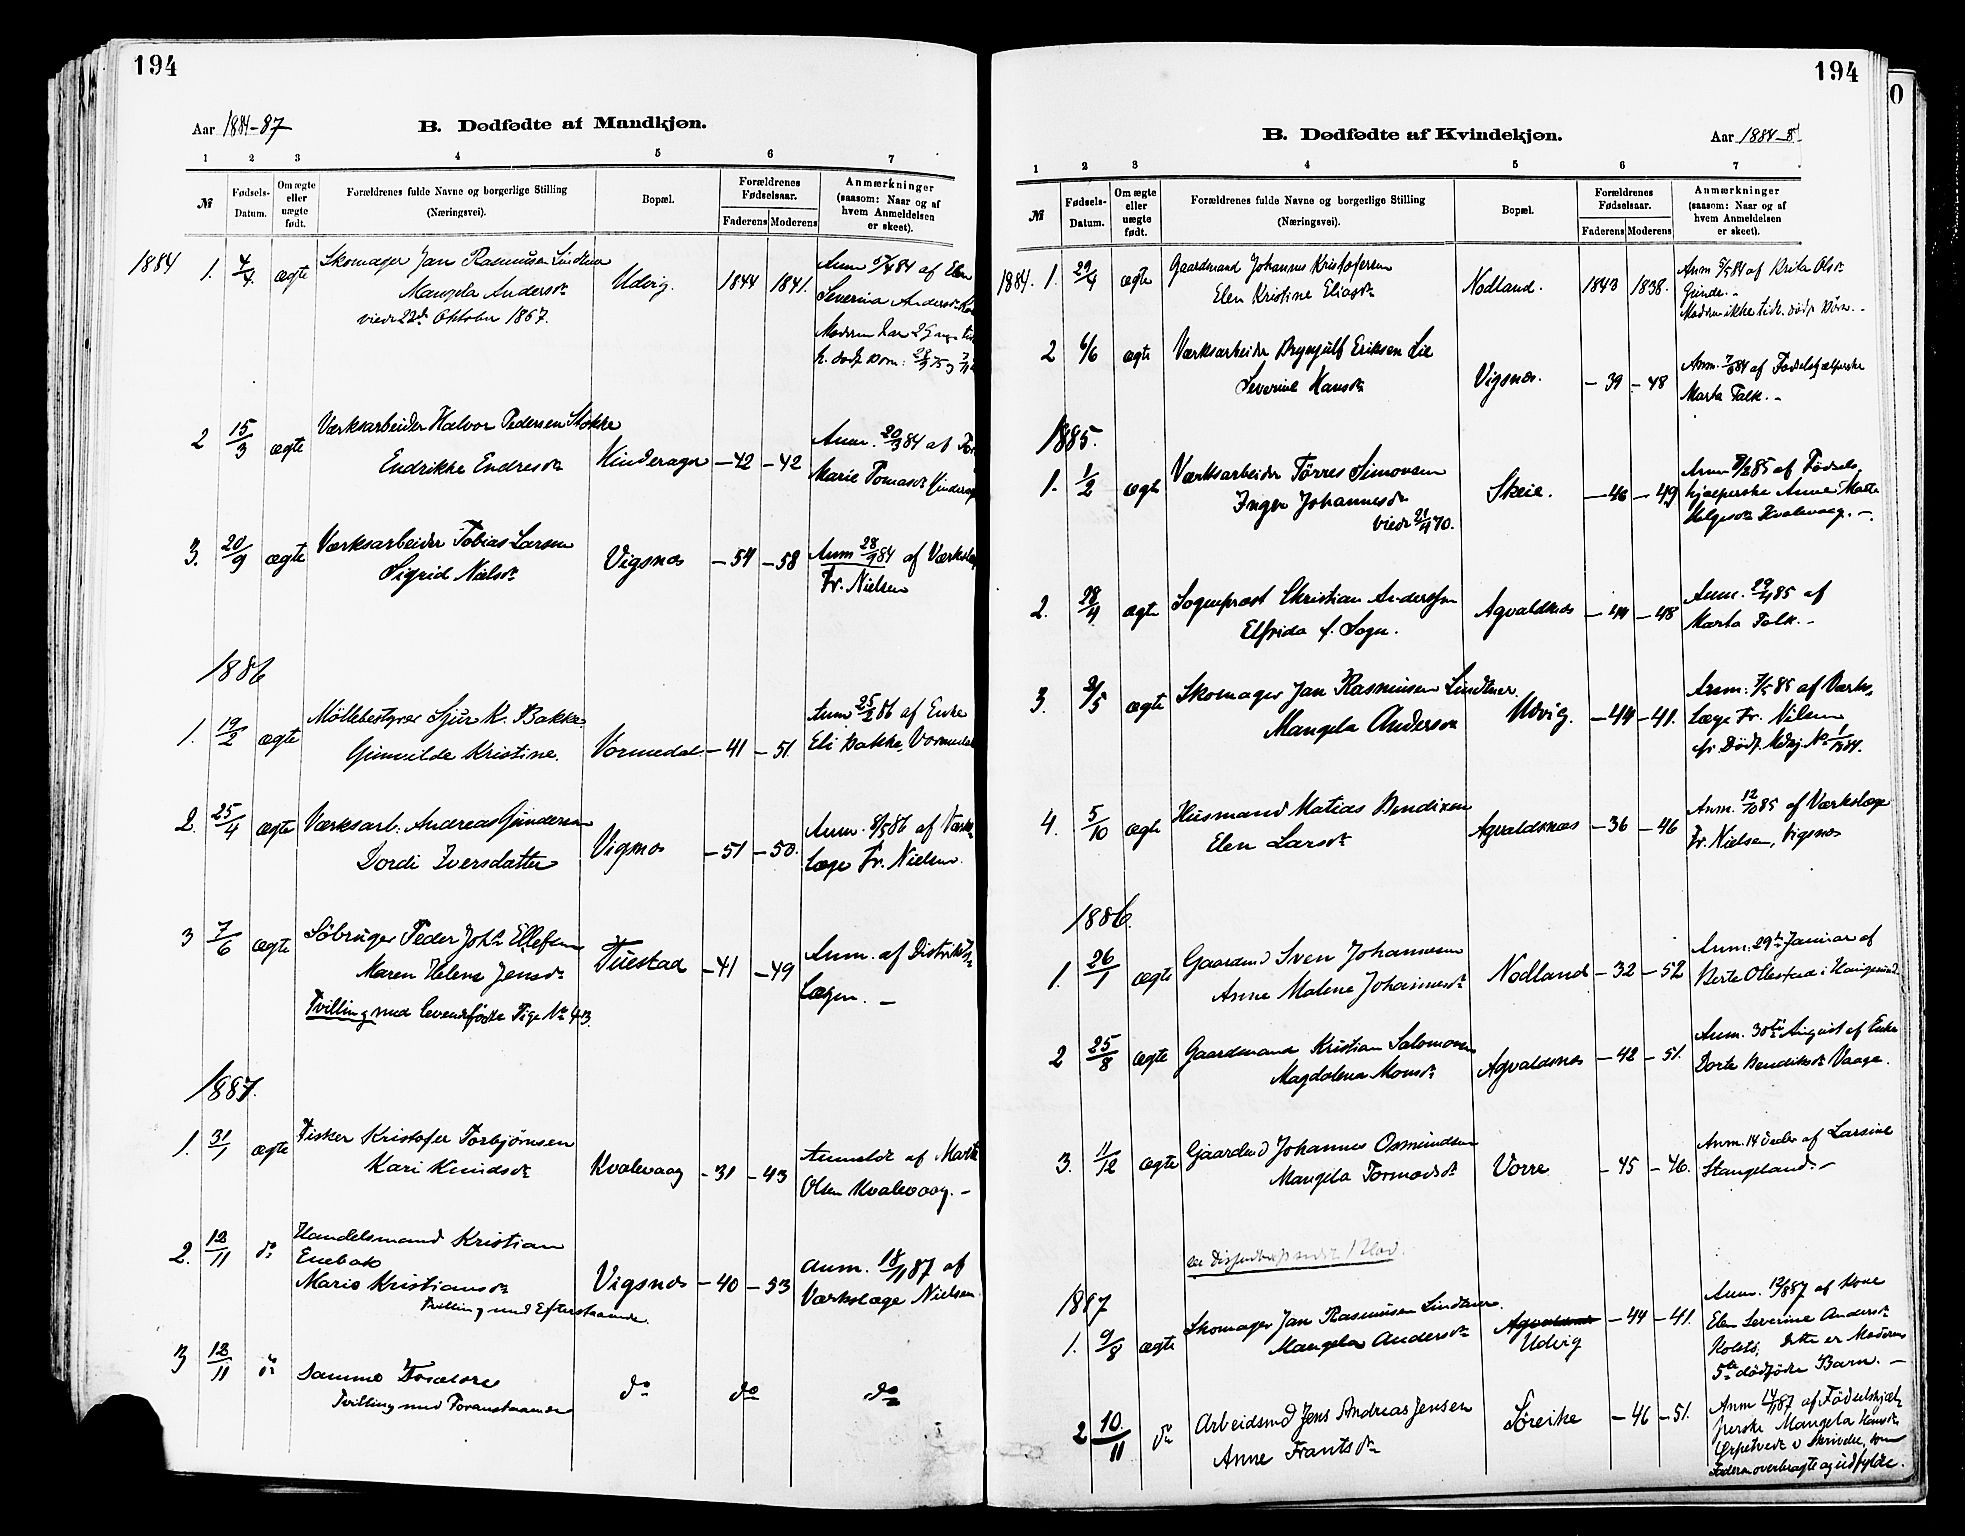 194
Aar 1884-87
B. Dødfødte af Mandkjøn.
1 2 3 4 5 6 7
№ Fødsels-Datum. Om ægte eller uægte født. Forældrenes fulde Navne og borgerlige Stilling (Næringsvei). Bopæl. Forældrenes Fødselsaar. Faderens Moderens Anmærkninger (saasom: Naar og af hvem Anmeldelsen er skeet).
1884 1. 4/4 ægte Skomager Jan Rasmusen Lindtner Udvig. 1844 1841. Anm. af Elen
Mangela Andersdr Severina Andersdr
viede 22de Oktober 1867. Moderen har 2 Gange
h. dødf. Born.
2 15/3 ægte Værksarbeider Halvor Pedersen Stokke Hinderager -42 -42 Anm. 20/3 84 af
Endrikke Endresdr Marie Tomasdr
3. 20/9 ægte Værksarbeider Tobias Larsen Vigsnæs -54 -58 Anm 28/9 84 af
Sigrid Nielsdr Fr. Nielsen
1886
1. 19/2 ægte Møllebestyrer Sjur K. Bakke Vormedal -41 -51. Anm. 25/2 86 af Enke
Gunnilde Kristine. Eli Bakke, Vormedal
2. 25/4 ægte Værksarb. Andreas Gundersen Vigsnæs -51 -50. Anm. 8/5 86 af Værks-
Dordi Iversdatter læge Fr. Nielsen.
3 7/6 ægte Søbruger Peder Johs Ellefsen Tuestad -41 -49 Anm. af Distrikts-
Maren Helene Jensdr Lægen. -
Tvilling med levendefødte Pige No 43.
1887.
1. 31/1 ægte Fisker Kristofer Torbjørnsen Kvalevaag -31 -43 Anmeldt af
Kari Knudsdr Olsen Kvalevaag. -
2. 12/11 do Handelsmand Kristian Vigsnæs -40 -53 Anm. 18/11 87 af
Enebak Værkslæge Nielsen.
Marie Kristiansdr
Tvilling med Efterstaaende.
3 12/11 do Samme Forældre do do do
Tvilling med Foranstaaende
194
B. Dødfødte af Kvindekjøn.
Aar 1884-8
1 2 3 4 5 6 7
№ Fødsels-Datum. Om ægte eller uægte født. Forældrenes fulde Navne og borgerlige Stilling (Næringsvei). Bopæl. Forældrenes Fødselsaar. Faderens Moderens Anmærkninger (saasom: Naar og af hvem Anmeldelsen er skeet).
1884. 1. 29/4 ægte Gaardmand Johannes Kristofersen Nodland. 1843 1838. Anm 5/5 84 af Brita Olsdr
Elen Kristine Eliasdr Grinde. -
Moderen ikke tidl. dødf. Børn. -
2 6/6 ægte Værksarbeider Brynjulf Eriksen Lie Vigsnæs. -39 -48 Anm. 84 af Fødselshjælperske
Severine Hansdr Marta Falk. -
1885.
1. 1/2 ægte Værksarbeider Tørres Simonsen Skeie. -46 -49 Anm 85 af Fødsels-
Inger Johannesdr hjælperske Anne Marte
viede 70. Helgesdr Kvalevaag. -
2. 28/4 ægte Sognepræst Christian Anderssen Agvaldsnæs -44 -48 Anm. 29/4 85 af
Elfrida f. Sogn. Marta Falk. -
3. 2/5 ægte Skomager Jan Rasmusen Lindtner Udvig. -44 -41. Anm. 7/5 85 af Værks-
Mangela Andersdr Læge Fr. Nilsen,
cfr Dødf. Mdkj. No 1/1884.
4. 5/10 ægte Husmand Matias Bendixen Agvaldsnæs -36 -46 Anm. 12/10 85 af Værkslæge
Elen Larsdr Fr. Nielsen, Vigsnæs
1886.
1. 26/1 ægte Gaardmd Sven Johannesen Nodland -32 -52 Anm. 29de Januar af
Anne Malene Johannesdr Berte Ollestad i Haugesund.
2 25/8 ægte Gaardmand Kristian Salomonsen Agvaldsnæs -42 -51. Anm. 30te August af Enke
Magdalena Monsdr Dorte Bendiksdr Vaage.
3. 11/12 ægte Gaardmd Johannes Osmundsen Vorre -45 -46. Anm. 14 Decbr af Larsine
Mangela Tormodsdr Stangeland. -
1887
1. 9/8 ægte Skomager Jan Rasmusen Lindtner. Agvaldsnæs -44 -41. Anm. 12/8 87 af Kone
Mangela Andersdr Udvig Elen Severine Andersdr
Dette er Moderens
5te dødfødte Barn. -
2 10/11 do Arbeidsmd Jens Andreas Jensen Søreike -46 -51. Anm 87 af Fødselshjæl-
Anne Frantsdr perske Mangela Hansdr
Skrivelse, som
Faderen overbragte og udfyldte.